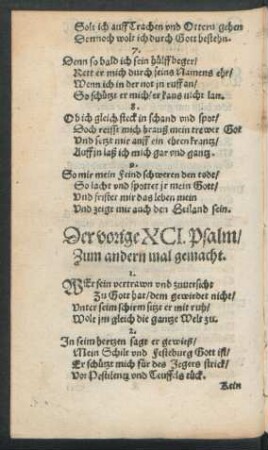 Solt ich auff Trachen vnd Ottern gehen
Dennoch wolt ich durch Gott bestehn.
7.
Denn so bald ich sein hülff beger/
Rett er mich durch seins Namens ehr/
Wenn ich in der not jn ruff an/
So schützt er mich/ er kans nicht lan.
8.
Ob ich gleich steck in schand vnd spot/
Doch reisst mich drauß mein trewer Got
Vnd setzt mir auff ein ehren krantz/
Auff jn laß ich mich gar vnd gantz.
9.
So mir mein Feind schweren den tode/
So lacht vnd spottet jr mein Gott/
Vnd fristet mir das leben mein
Vnd zeigt mir auch den Heiland sein.
Der vorige XCI. Psalm/
Zum andern mal gemacht.
1.
Wer sein vertrawn vnd zuuersicht
Zu Gott hat/ dem gewiedet nicht/
Vnter seim schirm sitzt er mit ruh/
Wolt jm gleich die gantze Welt zu.
2.
In seim hertzen sagt er gewiß/
Mein Schilt vnd Festeburg Gott ist/
Er schützt mich für des Jegers strick/
Vor Pestilentz vnd Teuffels tück.
Kein